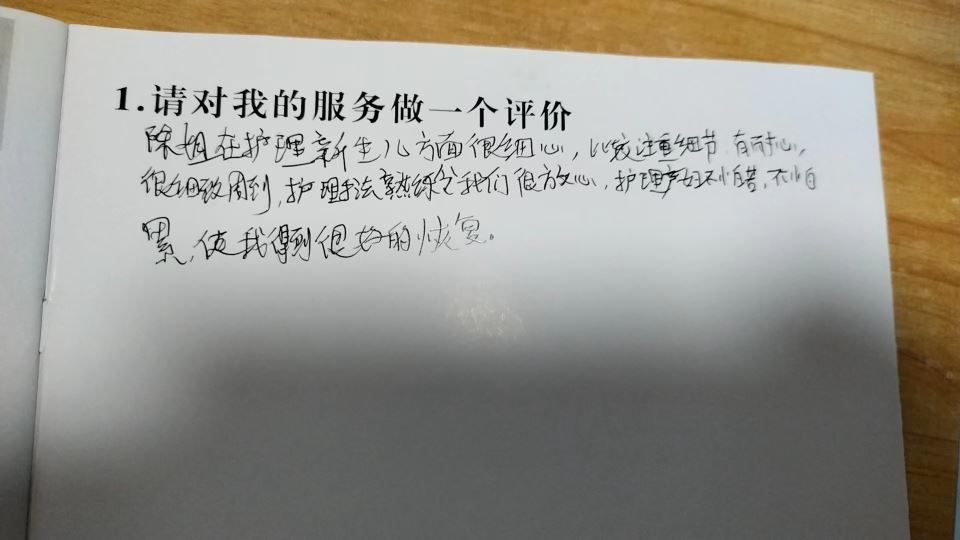 1.请对我的服务做一个评价
陈姐在护理新生儿方面很细心，比较注重细节，有耐心，
很细致周到，护理手法熟练令我们很放心，护理产妇不怕苦，不怕
累，使我得到很好的恢复。